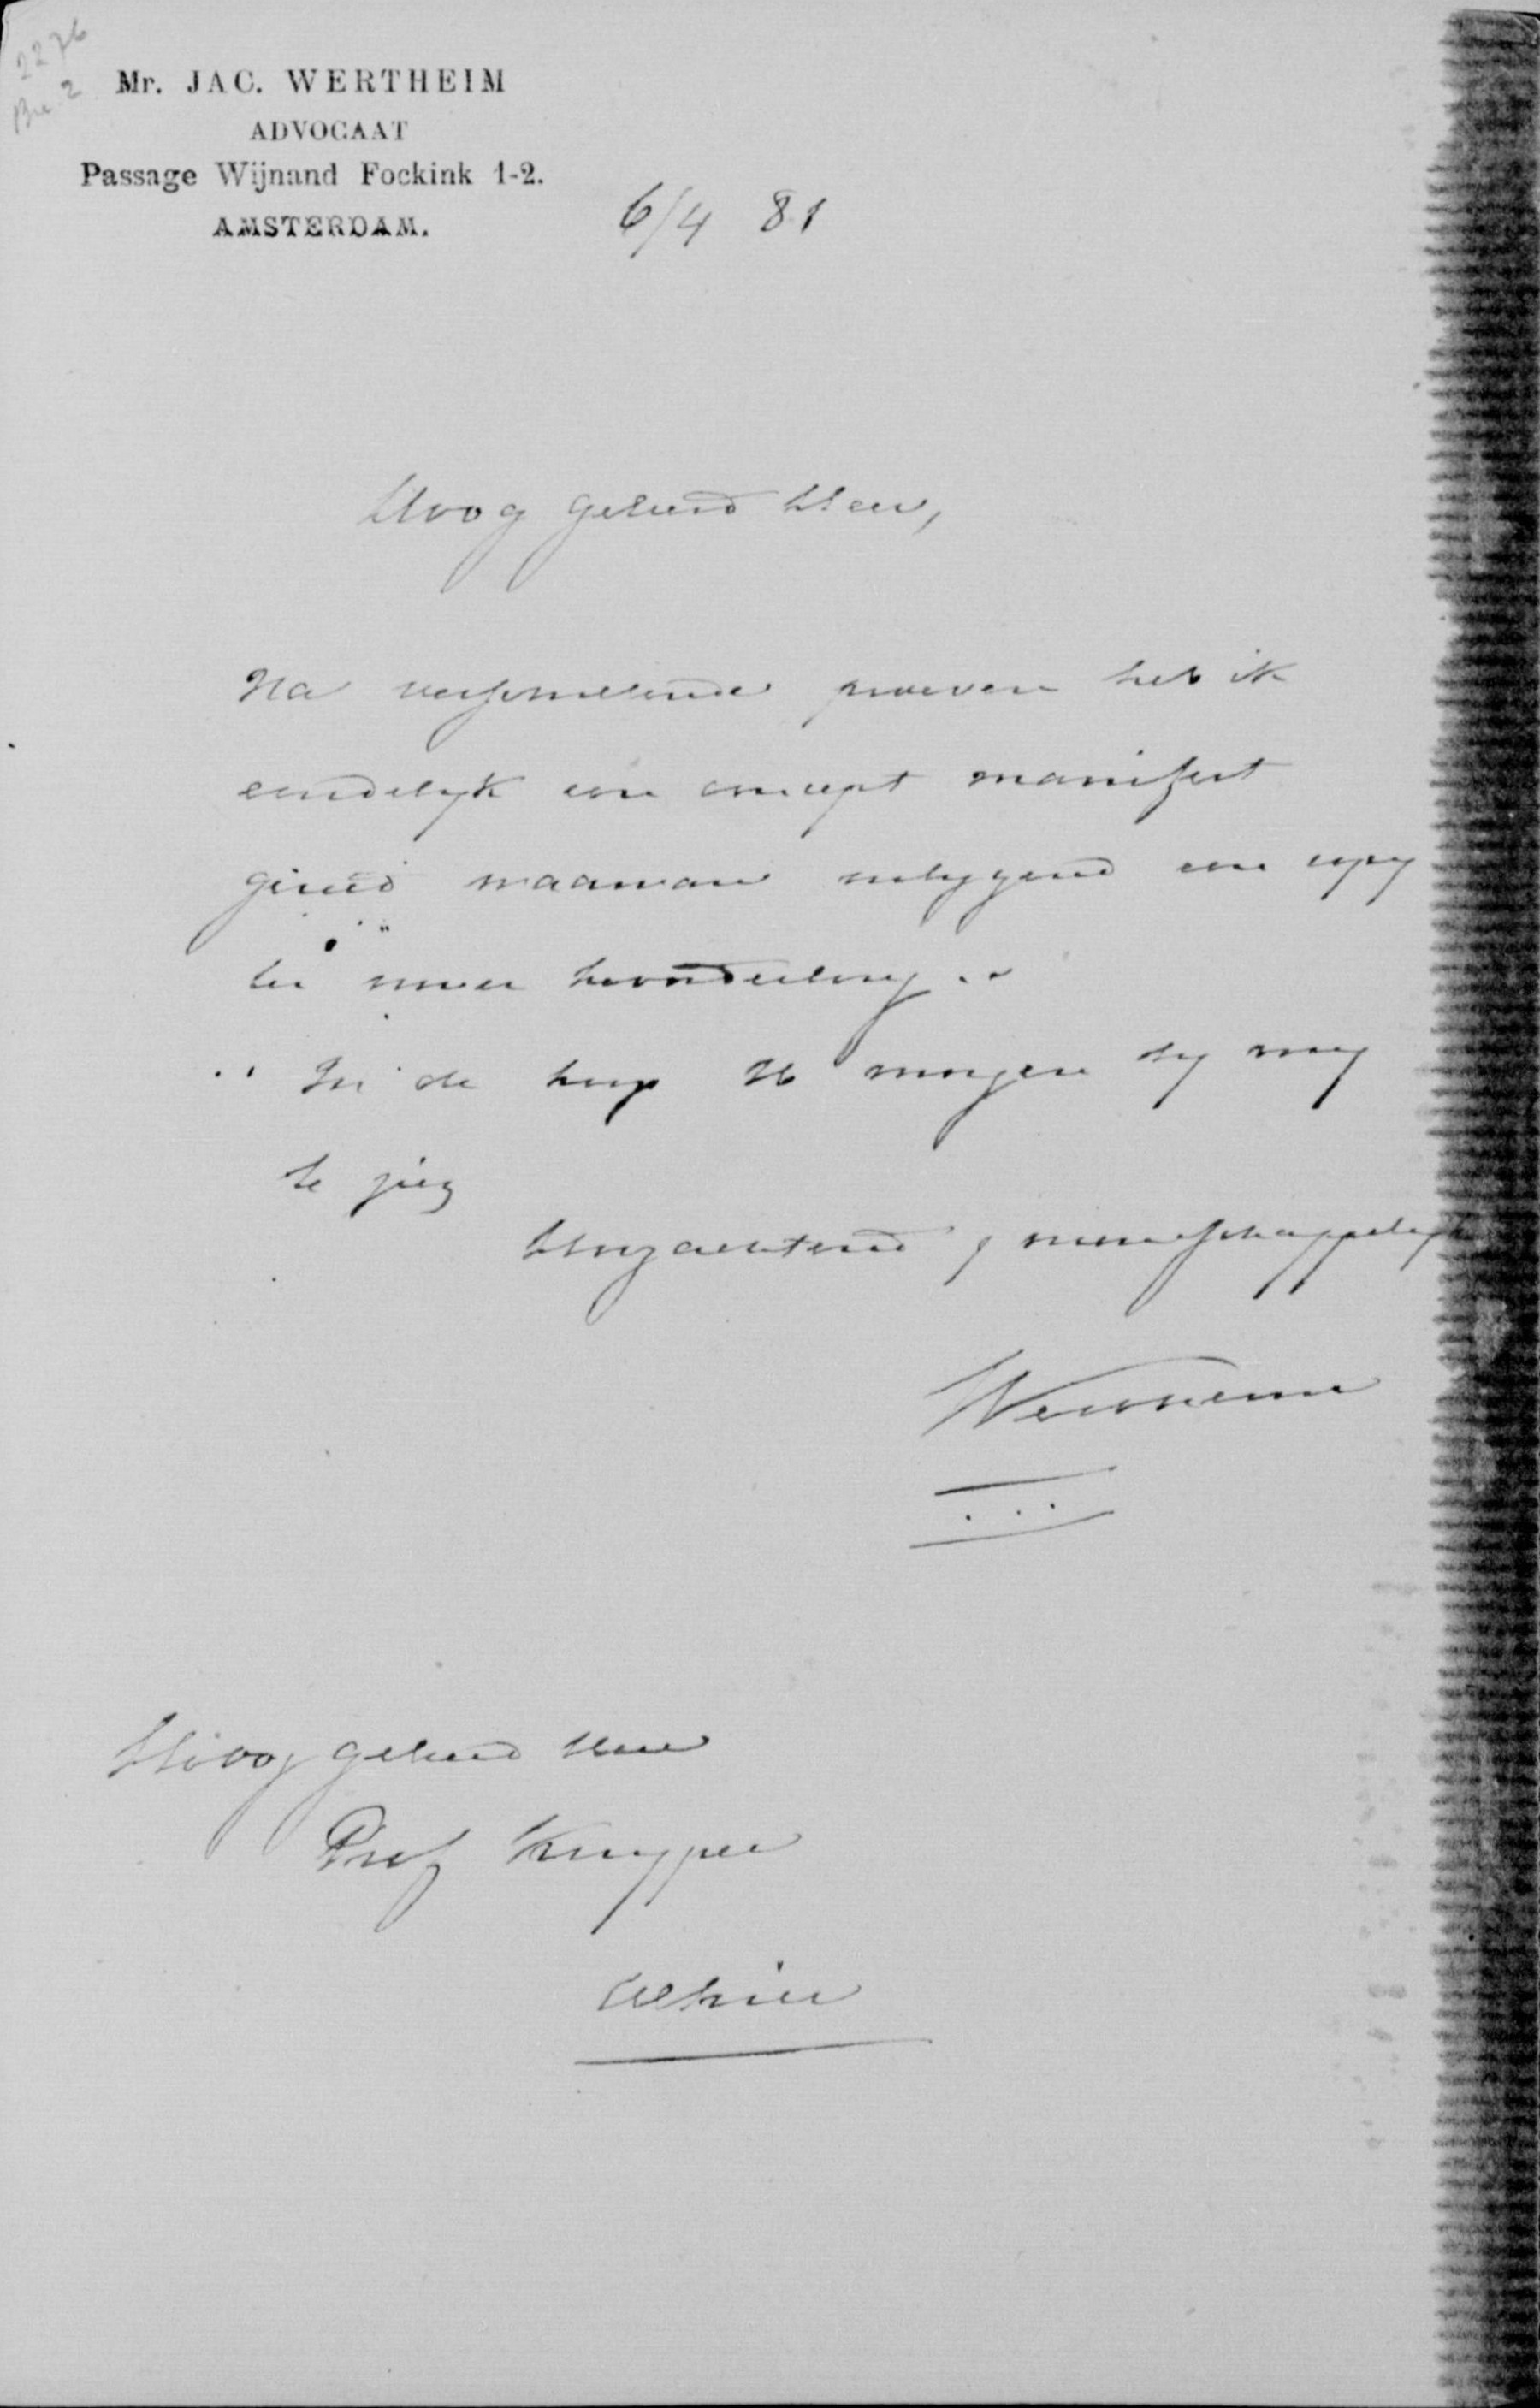 2276
Br. 2
Mr. JAC. WERTHEIM
ADVOCAAT
Passage Wijnand Fockink 1-2.
AMSTERDAM.
6/4 81
Hoog geleerd Heer,
Na verschillende proeven heb ik
eindelyk een concept manifest
gereed waarvan nevensgaand een copy
ter uwer beoordeeling..
In de hoop U morgen by my
te zien
Hoogachtend, vriendschappelyk
Wertheim
Hoog geleerd Heer
Prof Kuyper
Alhier